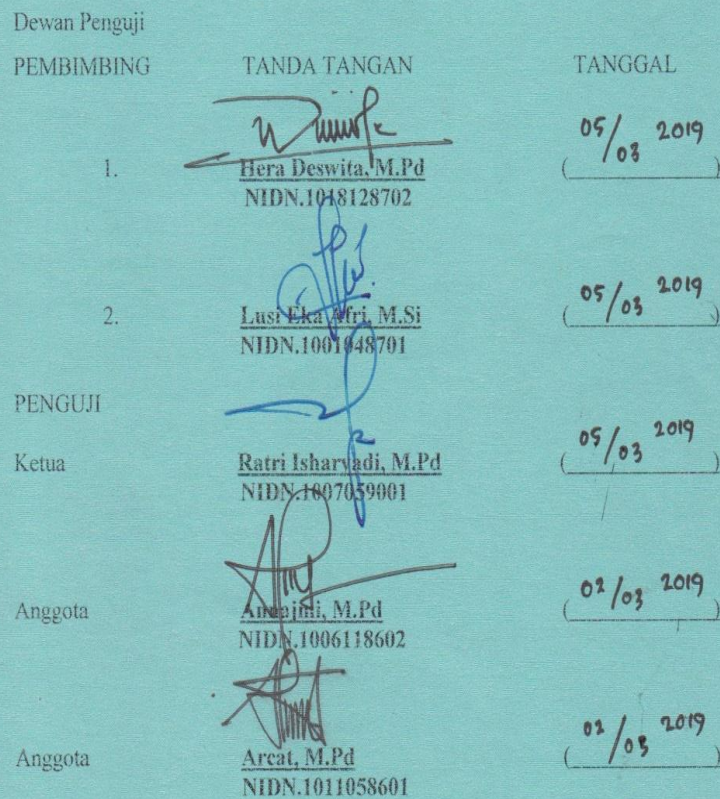 Dewan Penguji
PEMBIMBING TANDA TANGAN TANGGAL
05/03 2019
1. Hera Deswita, M.Pd ( )
NIDN.1018128702
05/03 2019
2. Lusi Eka Afri, M.Si ( )
NIDN.1001048701
PENGUJI
05/03 2019
Ketua Ratri Isharyadi, M.Pd ( )
NIDN.1007059001
02/03 2019
Anggota M.Pd ( )
NIDN.1006118602
02/03 2019
Anggota Arcat, M.Pd ( )
NIDN.1011058601